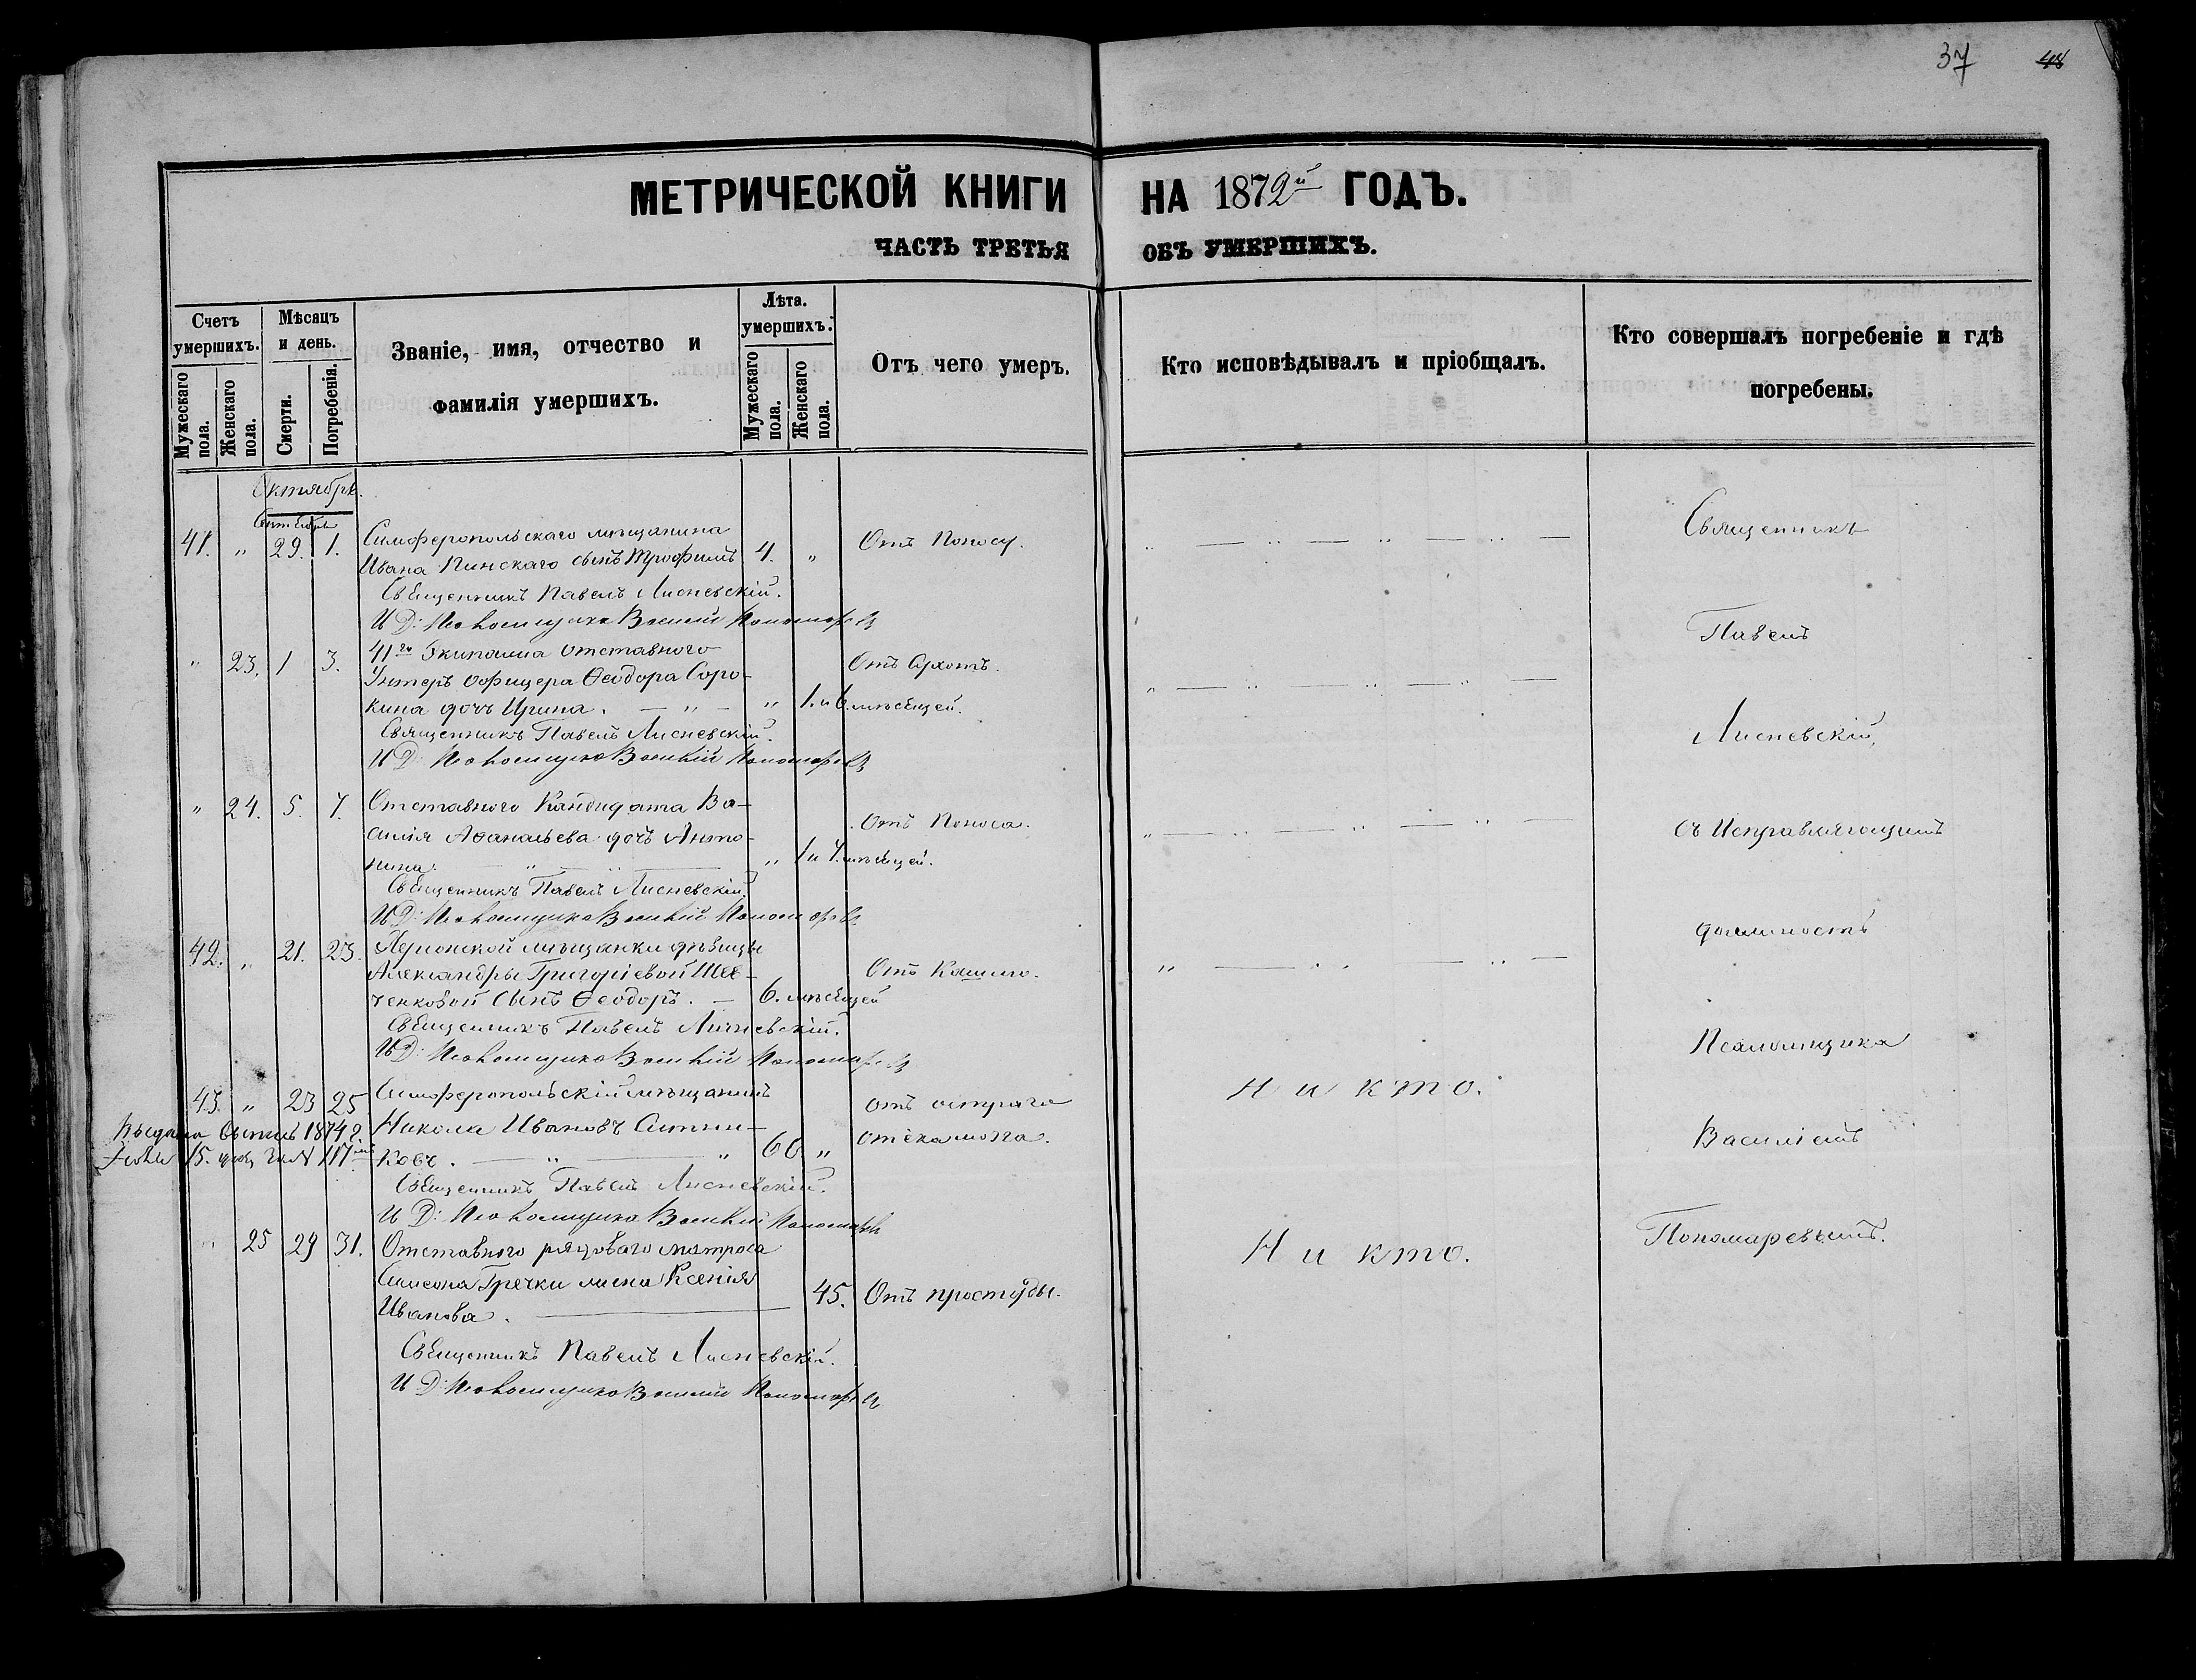 37 48
МЕТРИЧЕСКОЙ КНИГИ НА 1872й ГОДЪ.
ЧАСТЬ ТРЕТЬЯ ОБЪ УМЕРШИХЪ.
Счетъ умершихъ.
Мужескаго пола.
Женскаго пола.
Мѣсяцъ и день.
Смерти.
Погребенія.
Званіе, имя, отчество и
фамилія умершихъ.
Лѣта.
умершихъ.
Мужескаго пола.
Женскаго пола.
Отъ чего умеръ.
Кто исповѣдывалъ и пріобщалъ.
Кто совершалъ погребеніе и гдѣ
погребены.
Октябрь.
Сентября
41. „ 29. 1. Симферопольскаго мѣщанина
Ивана Пинскаго сынъ Трофимъ 4. „ Отъ Поносу.
Священникъ Павелъ Лисневскій.
И Д: Псаломщика Василій Пономаревъ
„ 23. 1 3. 41го Экипажа отставного
Унтеръ Офицера Ѳеодора Соро-
кина дочь Ирина. „ 1. и 6. мѣсяцей. Отъ
Священникъ Павелъ Лисневскій.
И Д: Псаломщика Василій Пономаревъ
„ 24. 5. 7. Отставного Кандидата Ва-
силія Аѳанасьева дочь Анто-
нина. „ 1 и 4. мѣсяцей. Отъ Поноса.
Священникъ Павелъ Лисневскій.
И Д: Псаломщика Василій Пономаревъ
42. „ 21. 23. мѣщанки дѣвицы
Александры Григоріевой Шев-
ченковой сынъ Ѳеодоръ. 6. мѣсяцей Отъ Кашлю.
Священникъ Павелъ Лисневскій.
И Д: Псаломщика Василій Пономаревъ
43. „ 23 25 Симферопольскій мѣщанинъ
Никола Ивановъ Ситни-
ковъ. 60 „ отъ остраго
отека мозга.
Н и к т о.
1874 г.
15. 117
Священникъ Павелъ Лисневскій.
И Д: Псаломщика Василій Пономаревъ
„ 25 29 31. Отставного рядоваго матроса
Симеона Гречки жена Ксенія
Иванова. 45. Отъ простуды.
Н и к т о.
Священникъ Павелъ Лисневскій.
И Д: Псаломщика Василій Пономаревъ
Священникъ
Павелъ
Лисневскій,
съ Исправляющимъ
должность
Псаломщика
Василіемъ
Пономаревымъ.